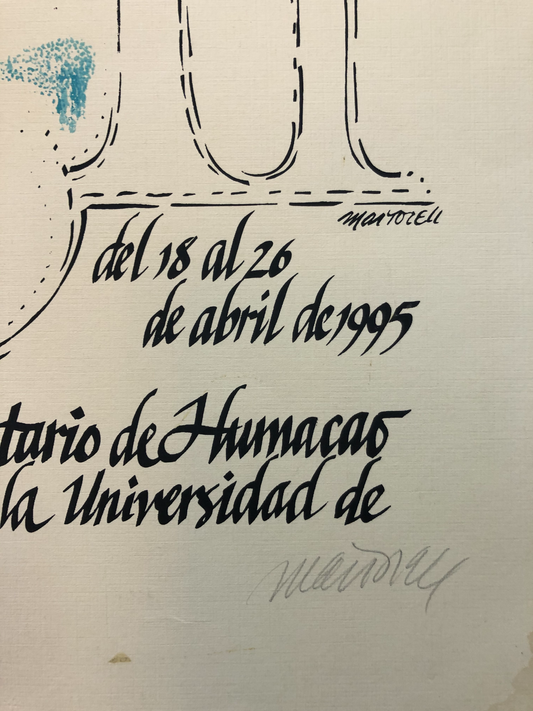 Martorell
del 18 al 26
de abril de 1995
tario de Humacao
la Universidad de
Martorell